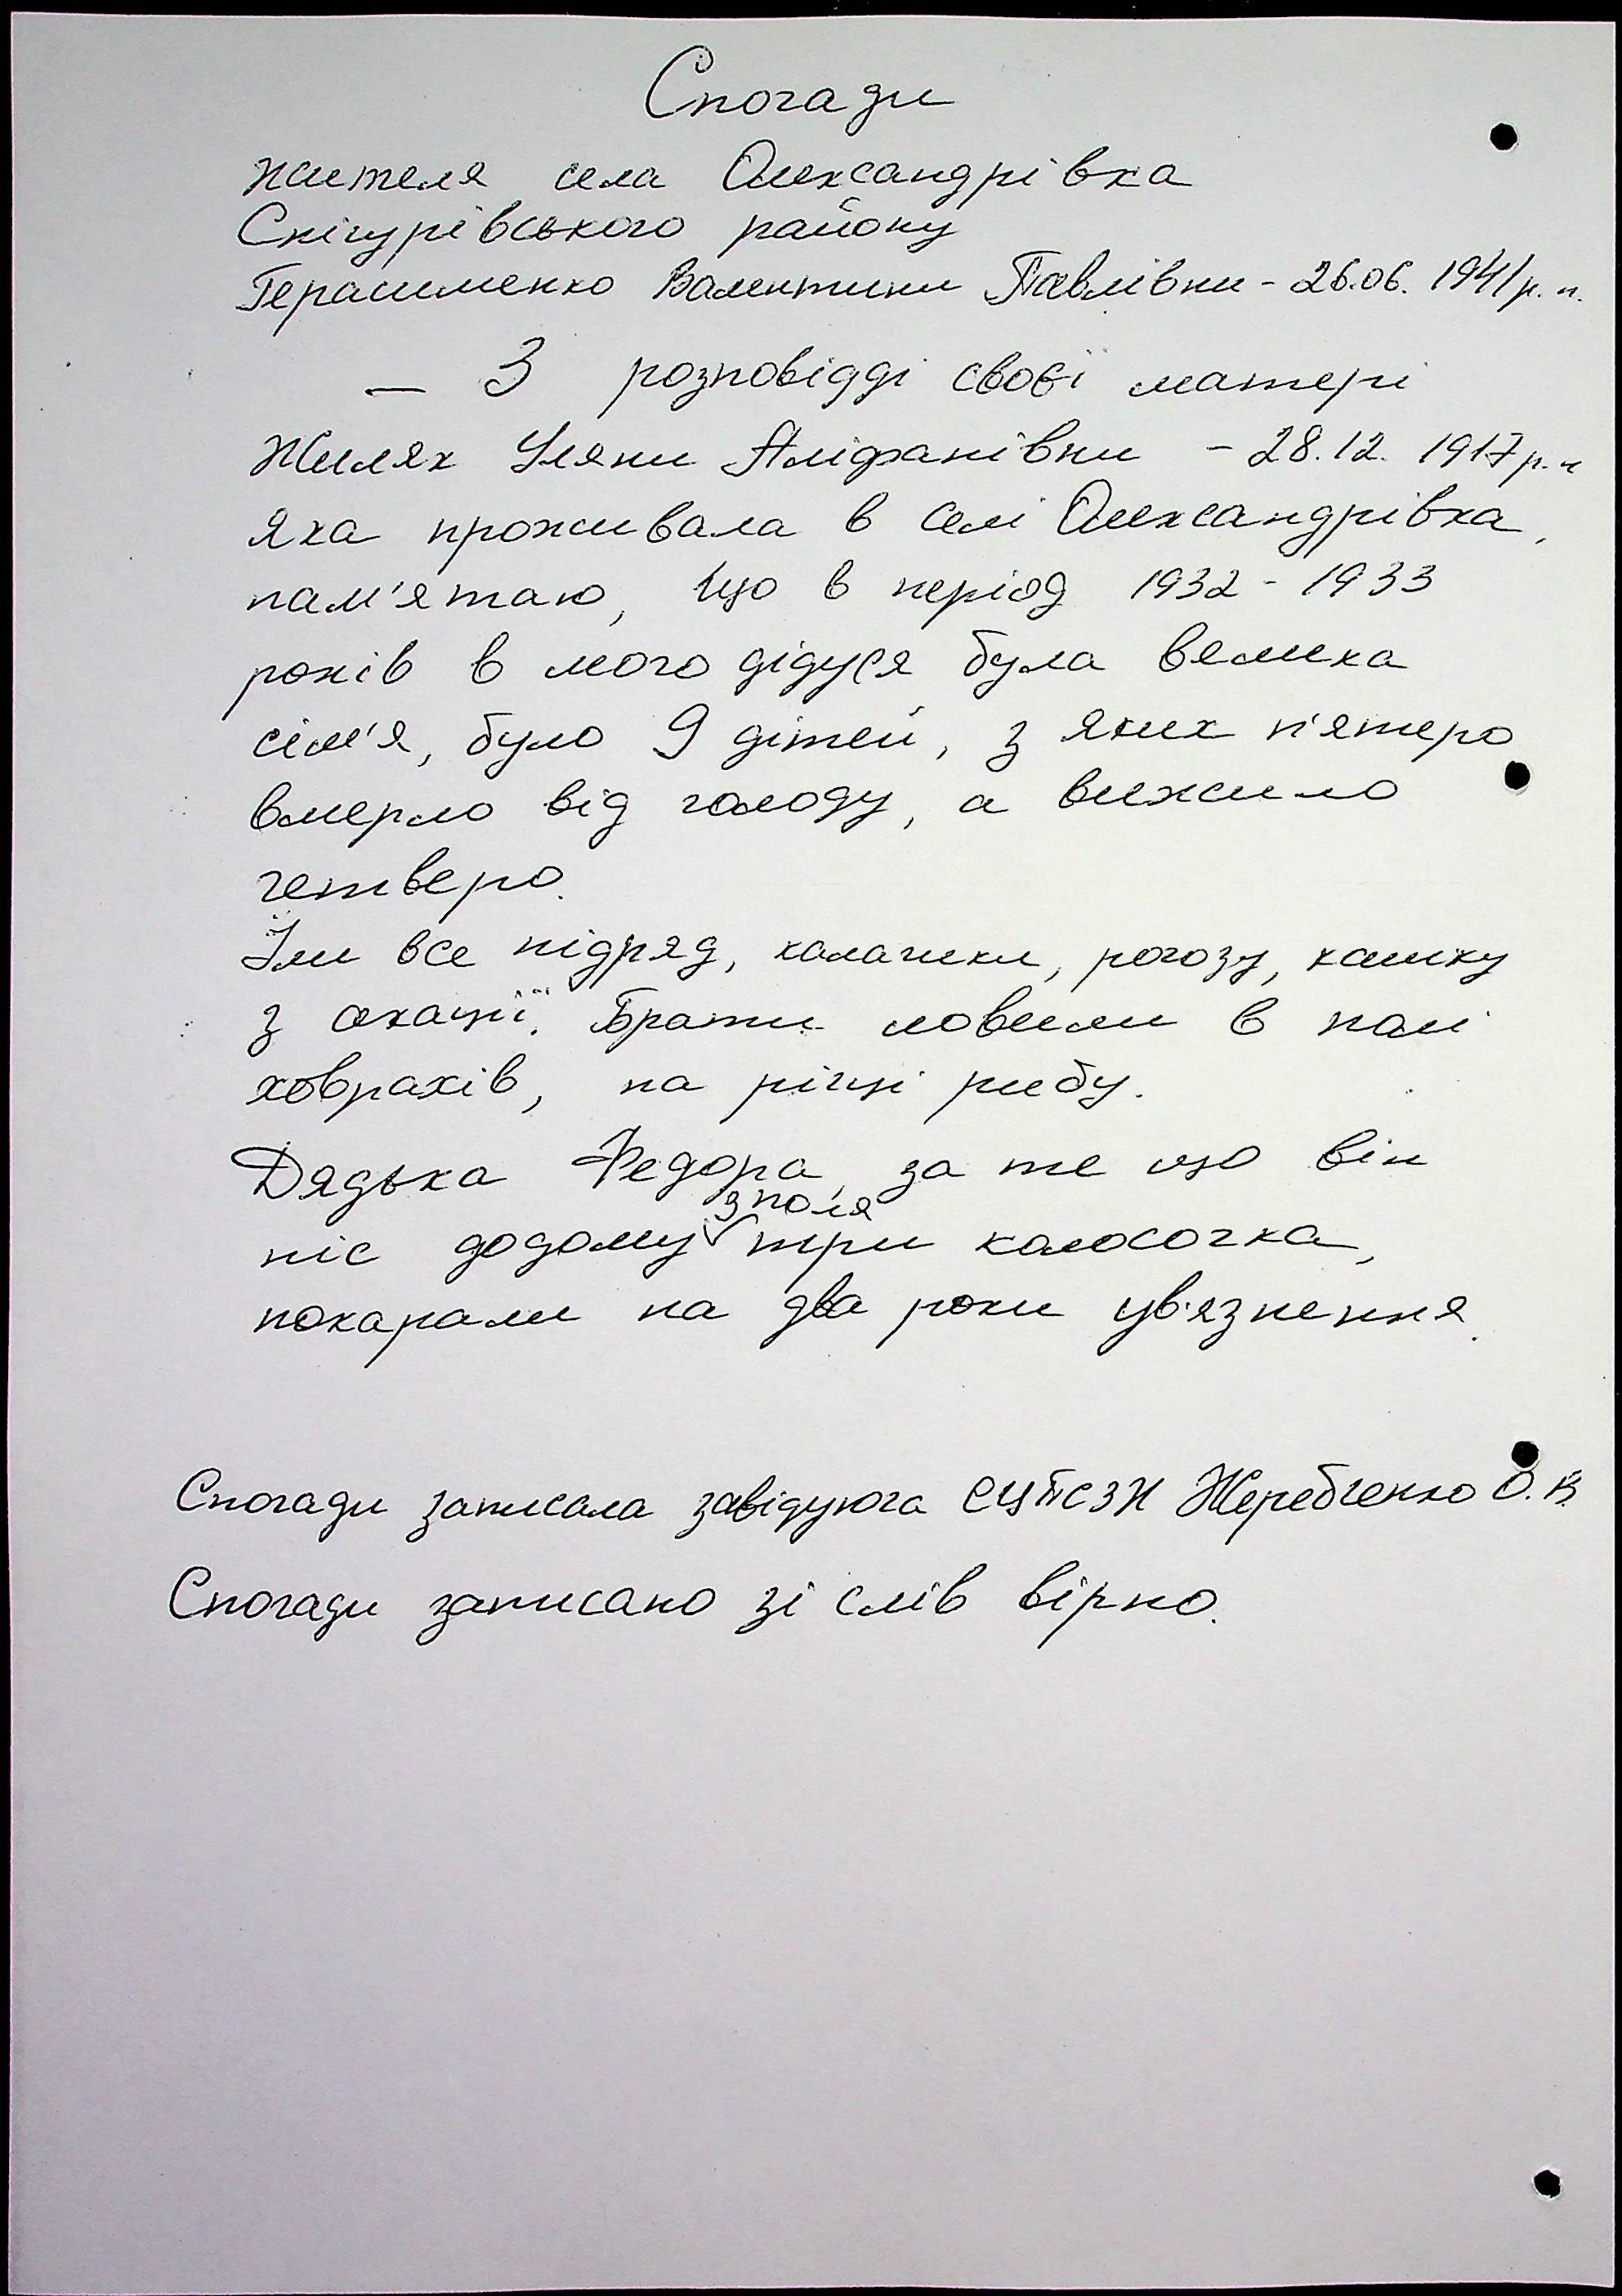 Спогади
жителя села Олександрівка
Снігурівського району
Герасименко Валентини Павлівни - 26.06. 1941 р. н.
— З розповідді своєї матері
Жиляк Уляни Аліфанівни - 28.12. 1917 р. н
яка проживала в селі Олександрівка,
пам'ятаю, що в період 1932 - 1933
років в мого дідуся була велика
сім'я, було 9 дітей, з яких п'ятеро
вмерло від голоду, а вижило
четверо.
Їли все підряд, калачики, рогозу, кашку
з акації. Брати ловили в полі
ховрахів, на річці рибу.
Дядька Федора, за те що він
з поля
ніс додому три колосочка,
покарали на два роки ув'язнення.
Спогади записала завідуюча Жеребченко О. В.
Спогади записано зі слів вірно.